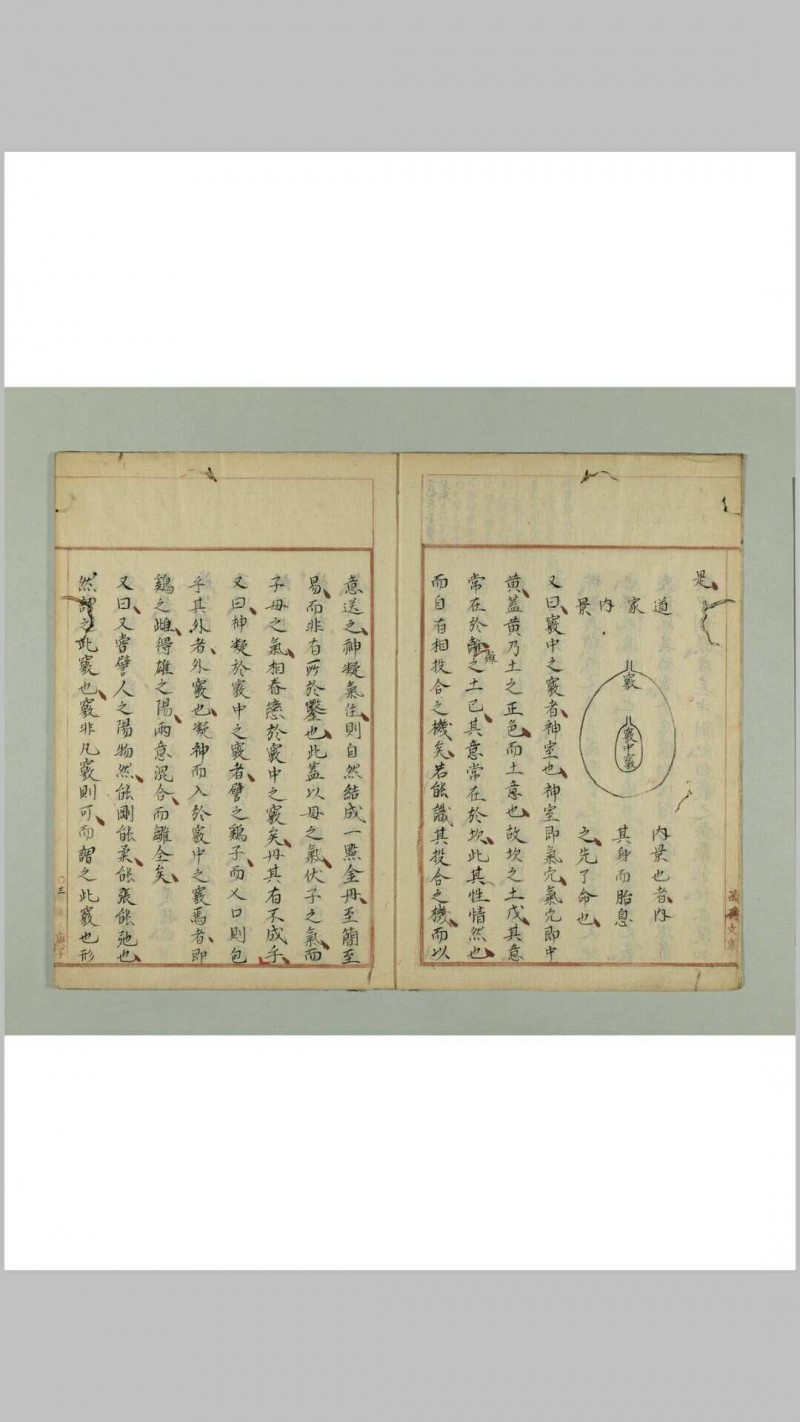 是
道家内景
此竅
此竅中竅
内景也者内
其身而胎息
之先了命也
又曰竅中之竅者神室也神室即氣穴氣穴即中
黄蓋黄乃土之正色而土意也故坎之土戊其意
常在於離之土已其意常在於坎此其性情然也
離
而自有相投合之機矣若能識其投合之機而以
意送之神凝氣住則自然結成一點金丹至簡至
易而非有所於鑿也此蓋以母之氣伏子之氣而
子母之氣相眷戀於竅中之竅矣丹其有不成乎
又曰神凝於竅中之竅者譬之鷄子而乂口則包
乎其外者外竅也凝神而入於竅中之竅焉者即
鷄之雌得雄之陽兩意混合而雛全矣
又曰又嘗譬人之陽物然能剛能柔能張能弛也
然謂之此竅也竅非凡竅則可而謂之此竅也形
三